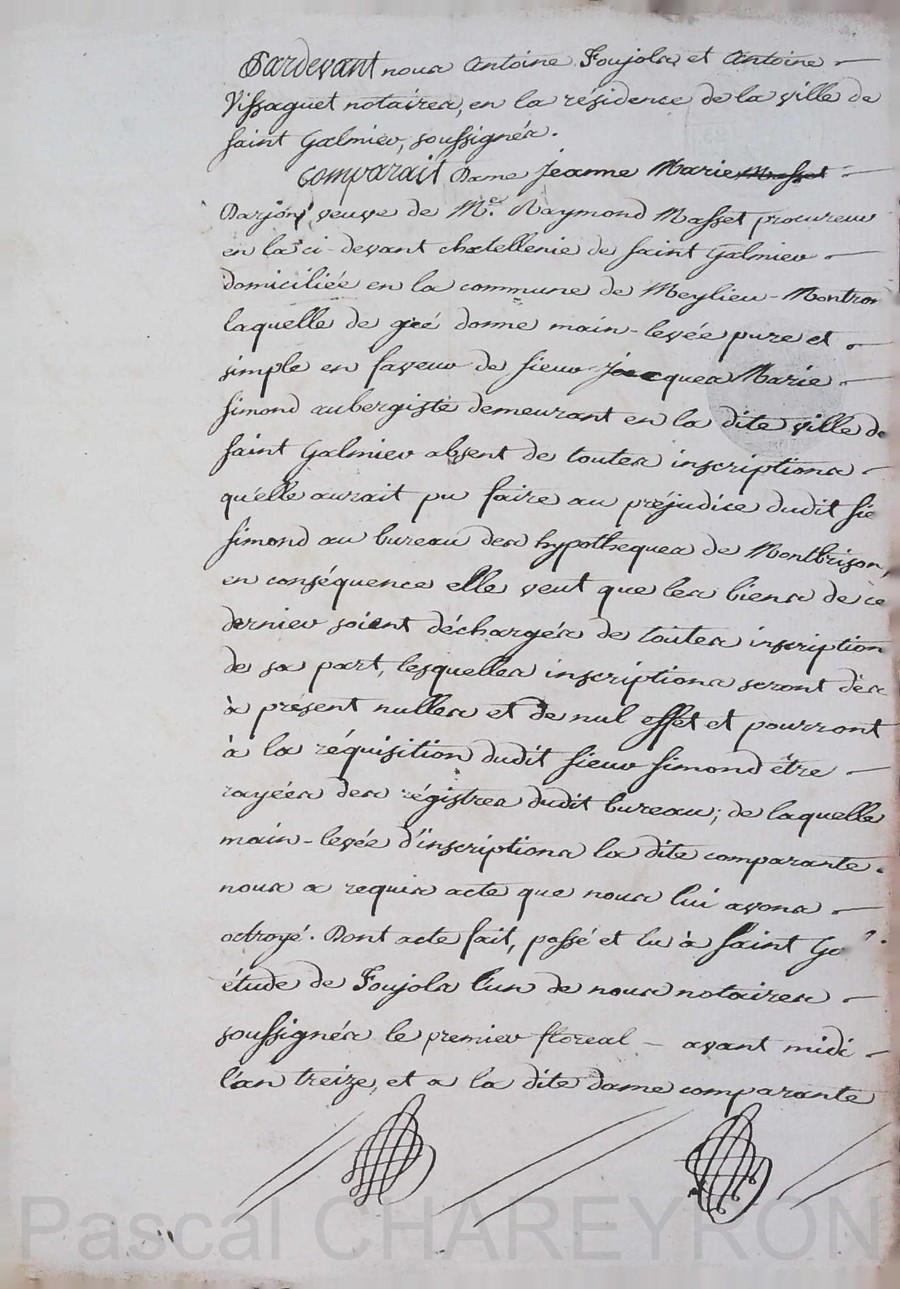 Pardevant nous Antoine Foujols et Antoine
Vissaguet notaires, en la résidence de la ville de
saint Galmier, soussignés.
Comparait Dame Jeanne Marie Masset
Darjon veuve de Me. Raymond Masset procureur
en la ci-devant chatellenie de saint Galmier
domiciliée en la commune de Meylieu-Montron
laquelle de gré donne main-levée pure et
simple en faveur de sieur Jacques Marie
simond aubergiste demeurant en la dite ville de
saint Galmier absent de toutes inscriptions
qu'elle aurait pu faire au préjudice dudit sie
simond au bureau des hypotheques de Montbrison,
en conséquence elle veut que les biens de ce
dernier soient déchargés de toutes inscription
de sa part, lesquelles inscriptions seront dès
à présent nulles et de nul effet et pourront
à la réquisition dudit sieur simond être
rayées des régistres dudit bureau; de laquelle
main-levée d'inscriptions la dite comparante
nous a requis acte que nous lui avons
octroyé. Dont acte fait, passé et lu à saint G
étude de Foujols l'un de nous notaires
soussignés le premier floreal - avant midi
l'an treize, et a la dite dame comparante
Pascal CHAREYRON